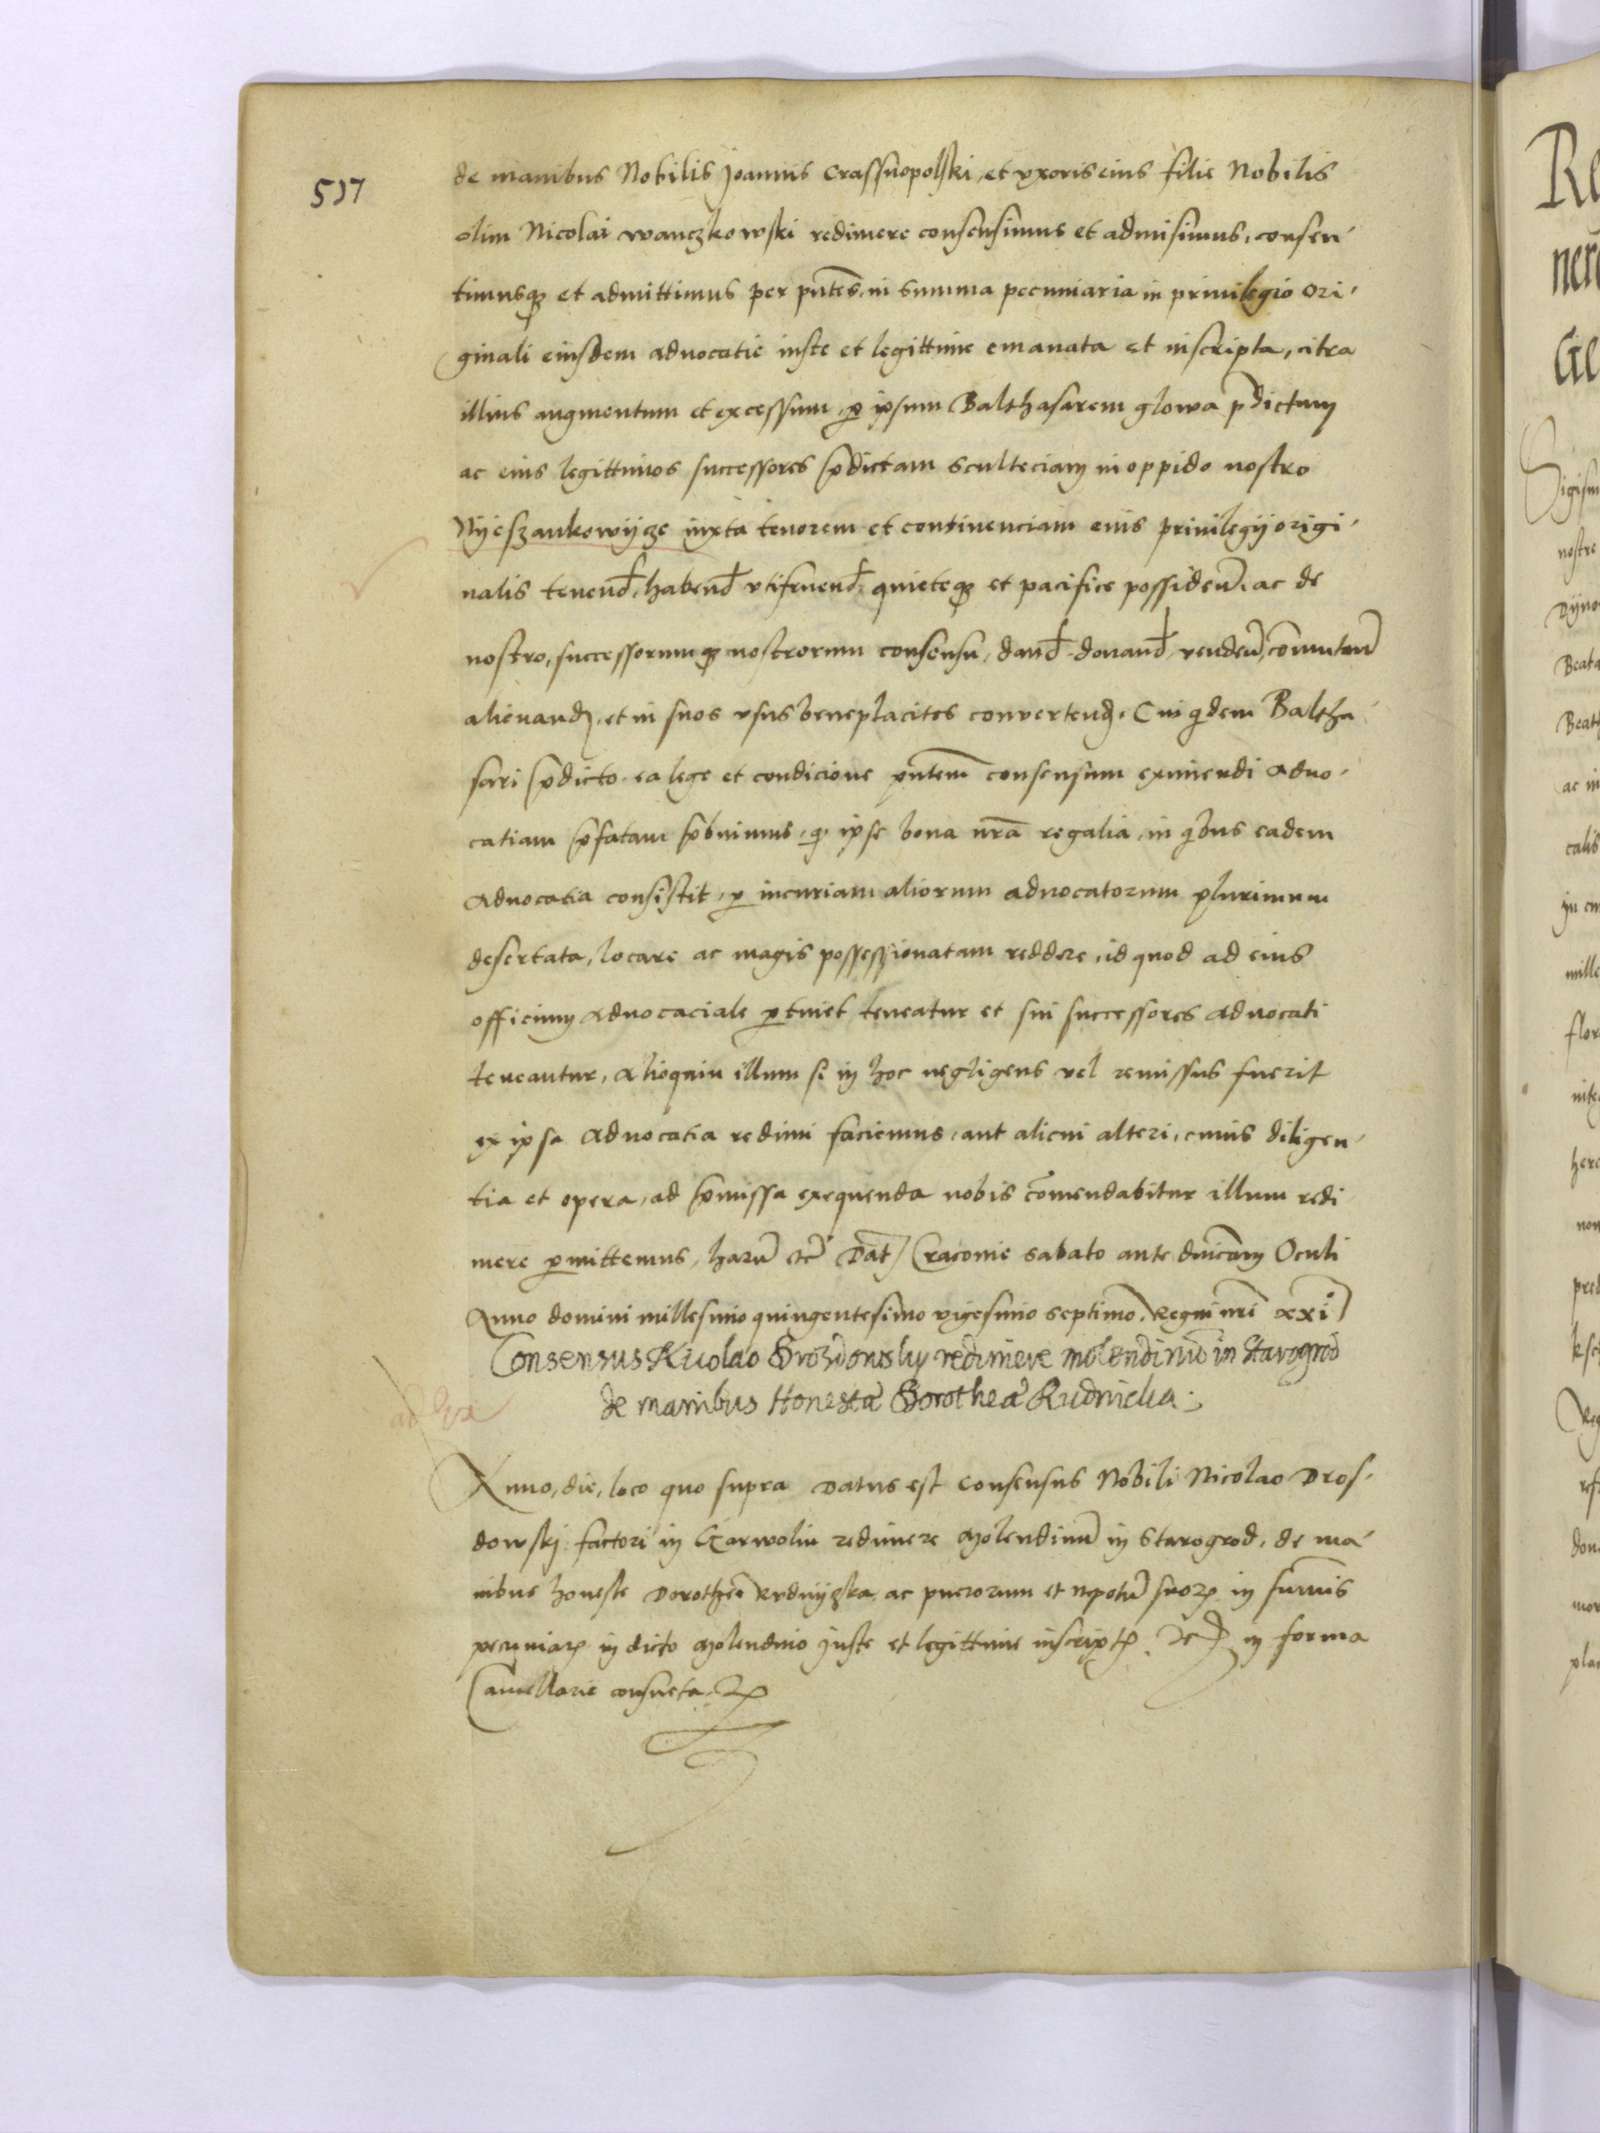 517
de manibus Nobilis Joannis Crassnopolski, et vxoris eius filie Nobilis
olim Nicolai Wanczkowski redimere consensimus et admisimus, consen-
timusq et admittimus per pntes, in summa pecuniaria in priuilegio ori-
ginali eiusdem aduocatie iuste et legittime emanata et inscripta, citra
illius augmentum et excessum, p ipsum Balthasarem glowa pdictum
ac eius legittimos successores pdictam sculteciam in oppido nostro
Nyeszankowycze iuxta tenorem et continenciam eius priuilegij origi-
nalis tenend, habend vtifruend, quieteq et pacifice possidend, ac de
nostro, successorumq nostrorum consensu, dand donand, vendend, comutand
alienand, et in suos vsus beneplacitos convertend. Cui qdem Baltha-
sari pdicto ea lege et condicione pntem consensum eximendi aduo-
catiam pfatam pbuimus, q ipse bona nra regalia, in qbus eadem
aduocatia consistit, p incuriam aliorum aduocatorum plurimum
desertata, locare ac magis possessionatam reddere, id quod ad eius
officium aduocaciale ptinet teneatur et sui successores aduocati
teneantur, alioquin illum si in hoc negligens vel remissus fuerit
ex ipsa aduocatia redimi faciemus, aut alicui alteri, cuius diligen-
tia et opera, ad pmissa exequenda nobis comendabitur illum redi
mere pmittemus, haru etc Dat Cracouie sabato ante dnicam Oculi
Anno domini millesimo quingentesimo vigesimo septimo. Regni nri xxi
Consensus Nicolao Drozdowsky redimere molendinu in Starogrod
de manibus Honestae Dorotheae Rudnicka.
Anno, die, loco quo supra Datus est consensus Nobili Nicolao Dros-
dowskj factori in Garwolin redimere molendinu in Starogrod, de ma-
nibus honeste Dorothee Rudnyczka ac puerorum et nepotu suor in sumis
pecuniar in dicto molendino juste et legittime inscript etc in forma
Cancellarie consueta